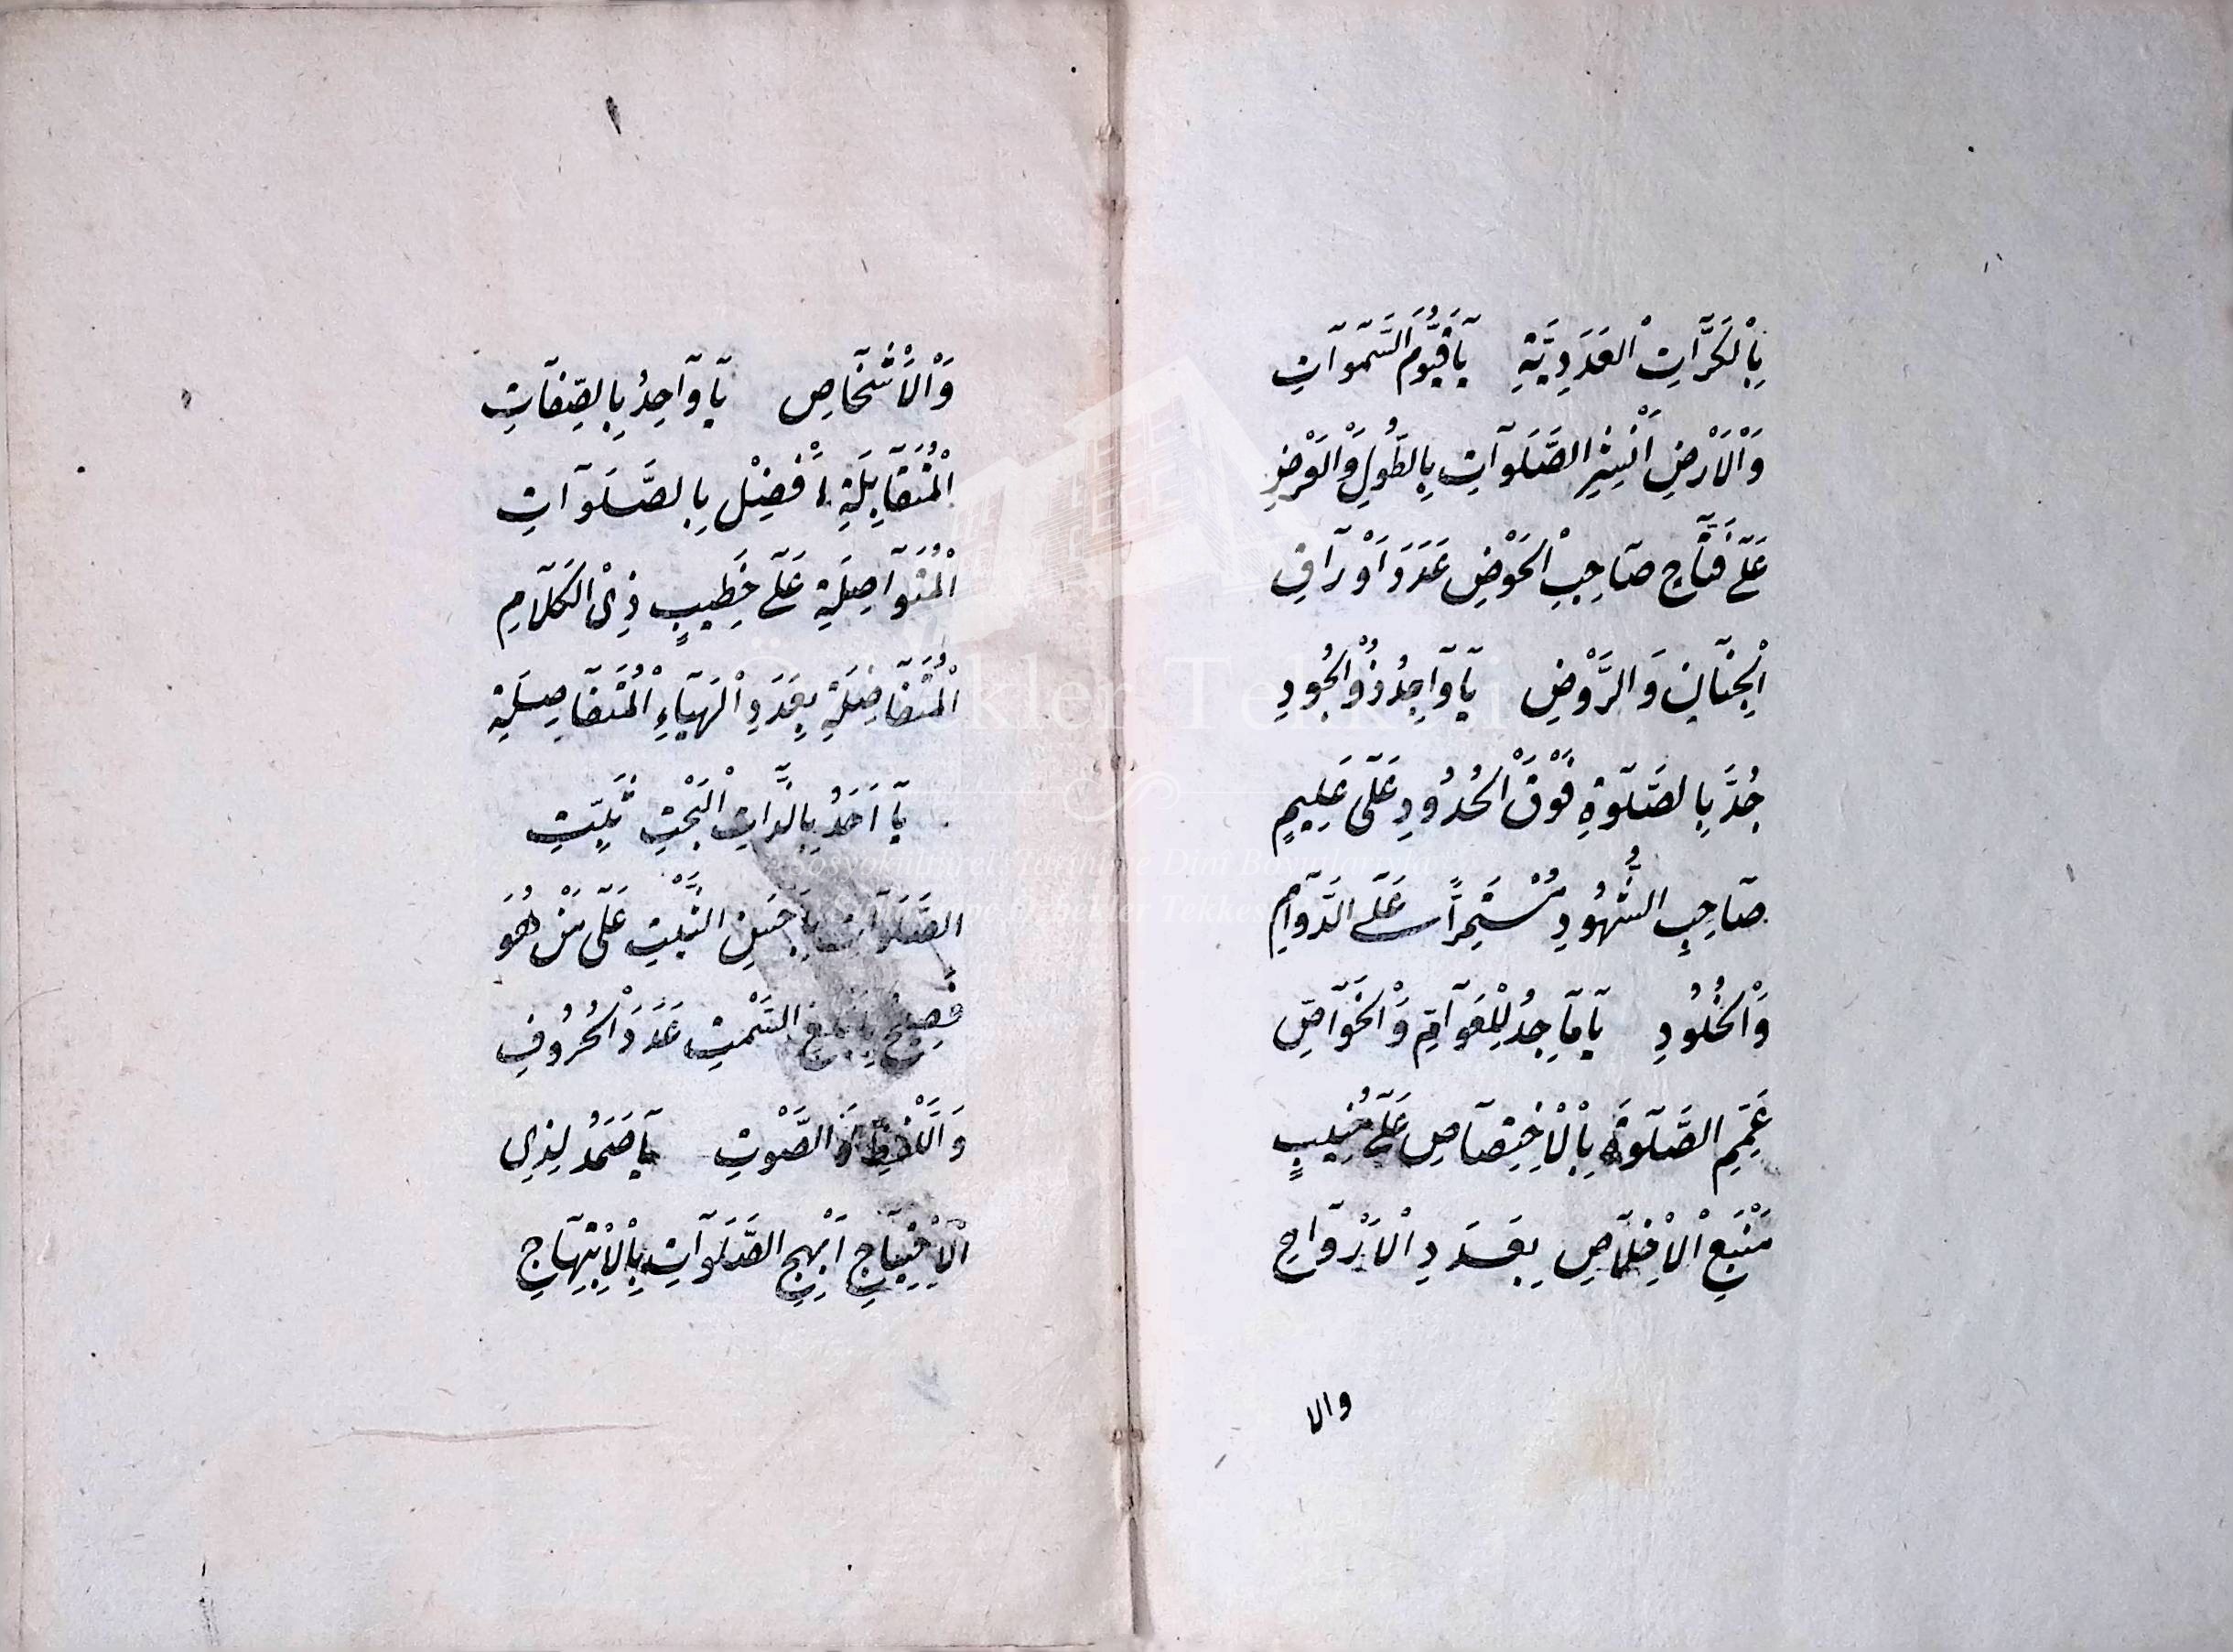 بِالْكَرَّاتِ الْعَدَدِيَّةِ يَا قَيُّومَ السَّمَوَاتِ
وَالْاَرْضِ اَنْشِرِ الصَّلَوَاتِ بِالطُّولِ وَالْعَرْضِ
عَلَى فَتَّاحٍ صَاحِبِ الْحَوْضِ عَدَدَ اَوْرَاقِ
الْجِنَانِ وَالرَّوْضِ يَا وَاجِدُ ذُو الْجُودِ
جُدَّ بِالصَّلَوةِ فَوْقَ الْحُدُودِ عَلَى عَلِيمٍ
صَاحِبِ الشُّهُودِ مُسْتَمِرًّا عَلَى الدَّوَامِ
وَالْخُلُودِ يَا مَاجِدُ لِلْعَوَامِ وَالْخَوَاصِّ
عَمِّمِ الصَّلَوةَ بِالْاِخْتِصَاصِ عَلَى مُنِيبٍ
مَنْبَعِ الْاِخْلَاصِ بِعَدَدِ الْاَرْوَاحِ
والا
وَالْاَشْخَاصِ يَا وَاحِدُ بِالصِّفَاتِ
الْمُتَقَابِلَةِ اَفْضِلْ بِالصَّلَوَاتِ
الْمُتَوَاصِلَةِ عَلَى خَطِيبٍ ذِى الْكَلَامِ
الْمُتَفَاضِلَةِ بِعَدَدِ الْهَبَاءِ الْمُتَفَاصِلَةِ
يَا اَحَدُ بِالذَّاتِ الْبَحْتِ ثَبِّتِ
الصَّلَوَاتِ بِاَحْسَنِ الثَّبْتِ عَلَى مَنْ هُوَ
فَصِيحٌ السَّمْتِ عَدَدَ الْحُرُوفِ
وَاللَّفْظِ وَالصَّوْتِ يَا صَمَدُ لِذِى
الْاِحْتِيَاجِ اَبْهِجِ الصَّلَوَاتِ بِالْاِبْتِهَاجِ